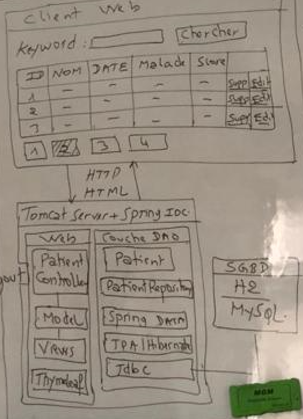 Client Web
Keyword : Chercher
ID NOM DATE Malade Score
1 - - - - Supp Edit
2 - - - - Supp Edit
3 - - - - Supp Edit
1 2 3 4
HTTP
HTML
Tomcat Server + Spring IOC
Web
Patient
Controller
Model
Thymeleaf
Couche DAO
Patient
Patient Repository
Spring DATA
JPA/Hibernate
Jdbc
SGBD
H2
MySQL
MGM